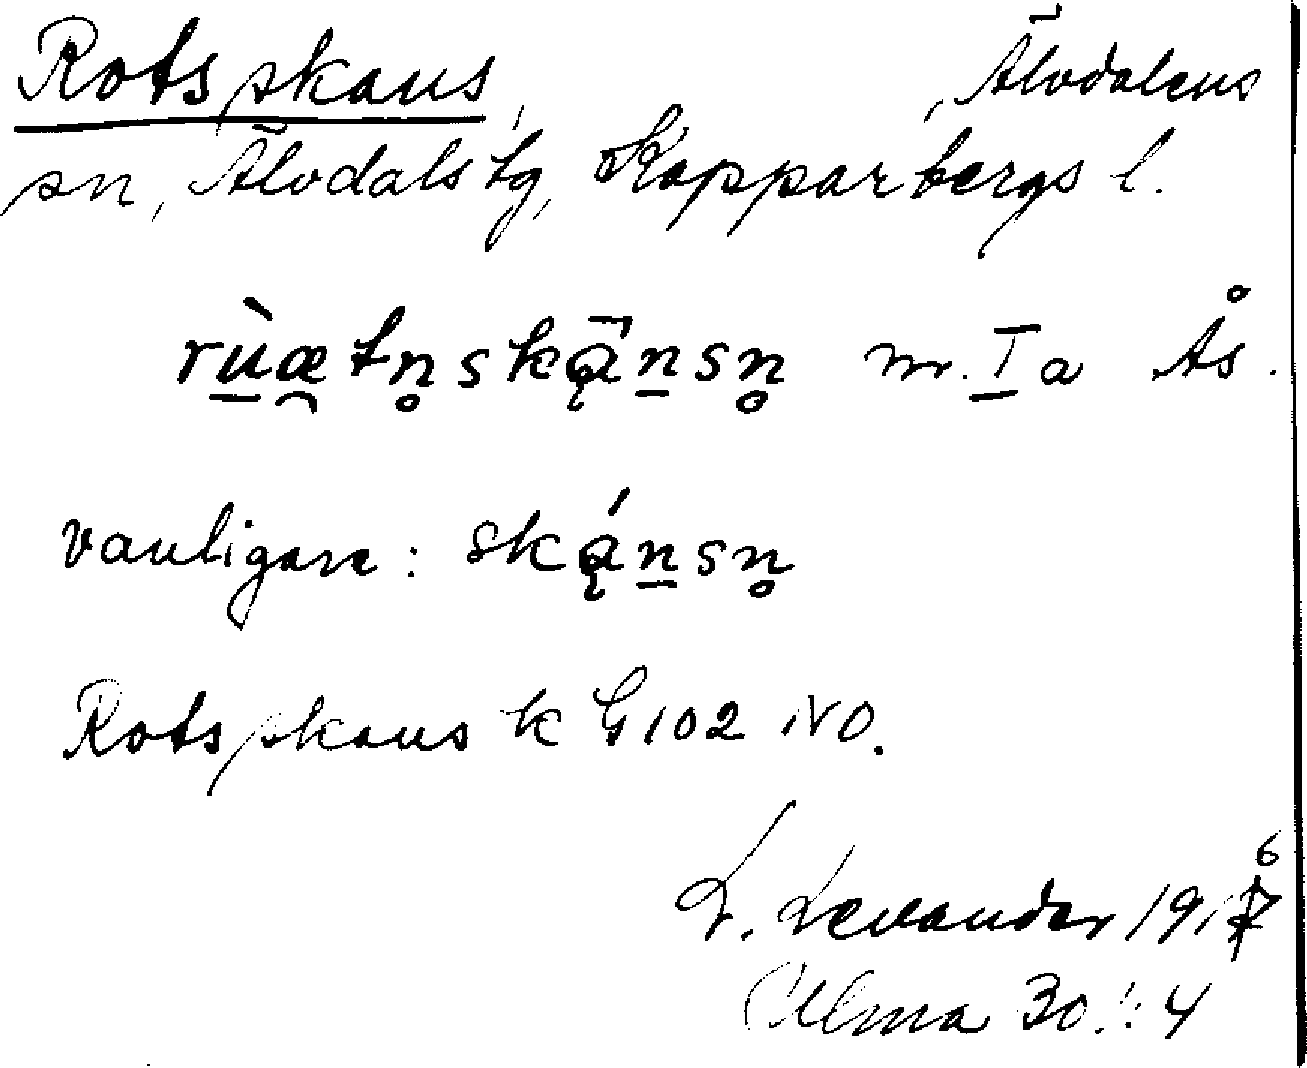 Rotsskans, Älvdalens
sn, Älvdals tg, Kopparbergs l.
rùæ̯tn̥ską̄̀nsn̥ m. I a Ås.
vanligare: ską́nsn̥
Rotsskans k G 102 NO.
L. Levander 1916
Ulma 30: 4